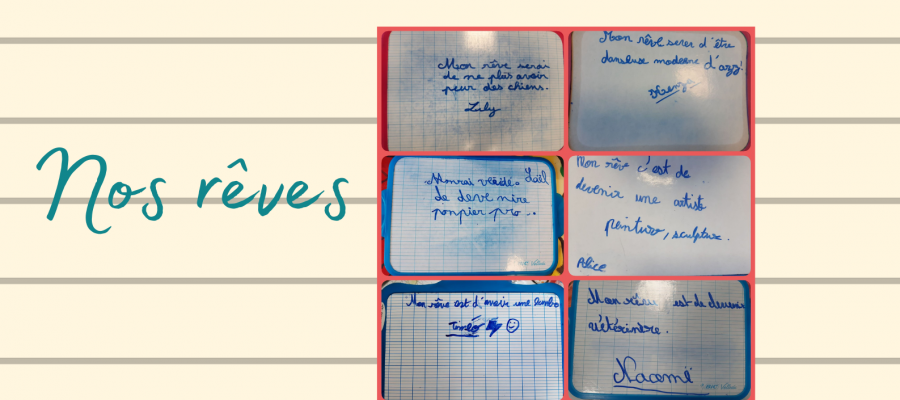 Nos rêves
Mon rêve serai
de ne plus avoir
peur des chiens.
Lily
Mon rêve serer d'être
danseuse moderne d'azz!
Monrai vééde Gaël
de deve nire
ponpier pro...
Mon rêve c'est de
devenir une artiste
peinture, sculpture.
Alice
Mon rêve est d'avoir une lambo
Timéo
Mon rêve est de devenir
vétérintre.
Nacemi